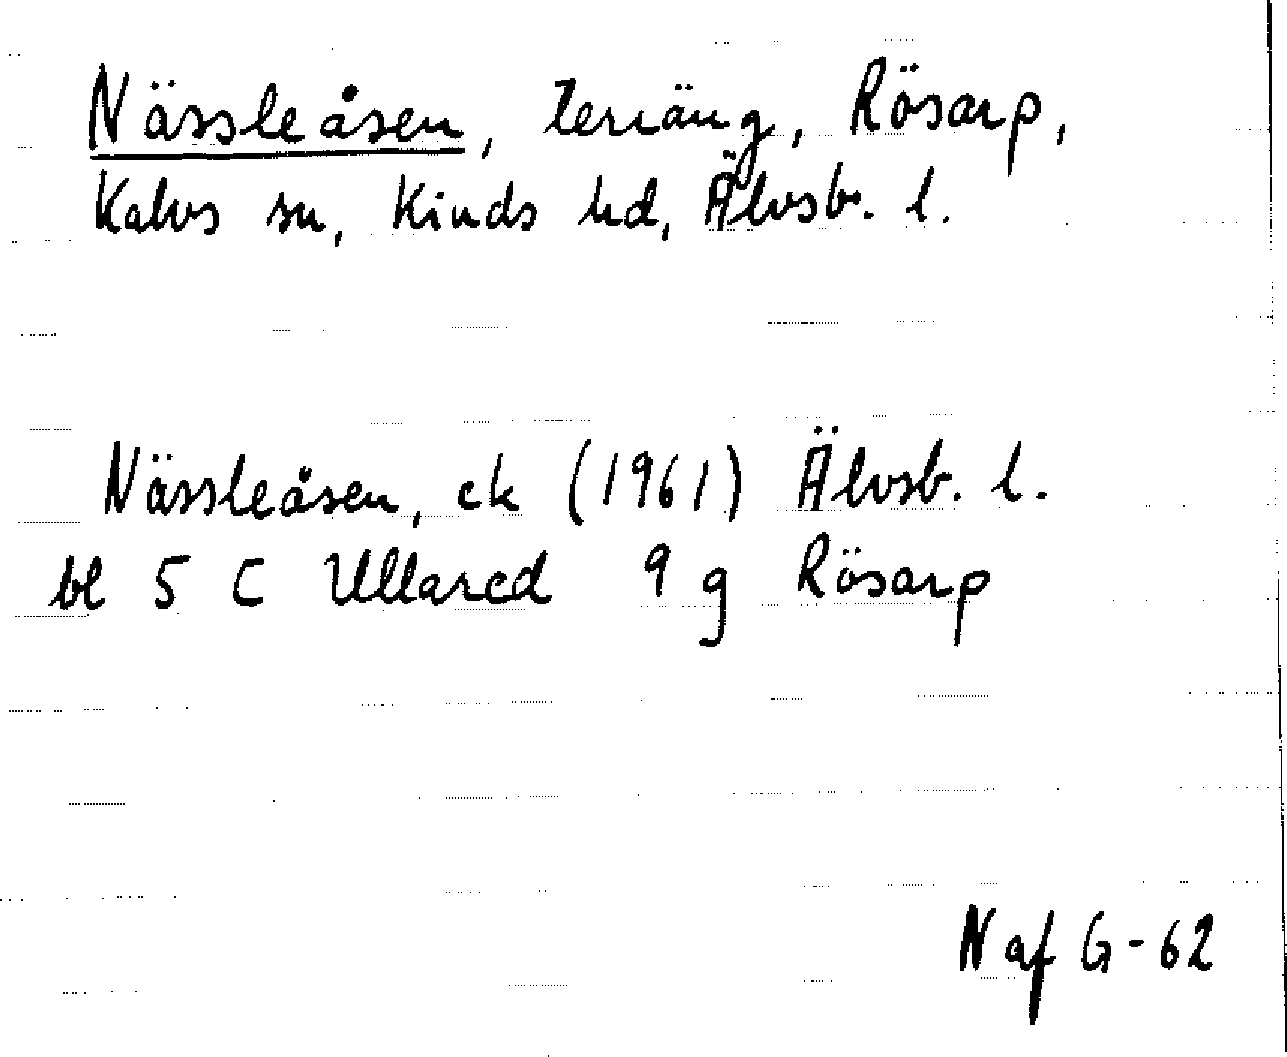 Nässleåsen, terräng, Rösarp,
Kalvs sn, Kinds hd, Älvsb. l.
Nässleåsen, ek (1961) Älvsb. l.
bl 5 C Ullared 9 g Rösarp
N af G-62